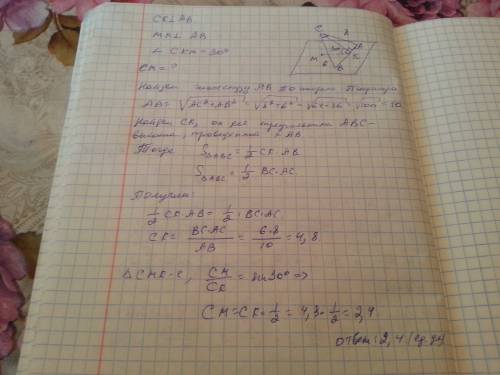 CK⊥AB
MK⊥ AB
∠ CKM = 30°
CM = ?
Найдем гипотенузу AB по теореме Пифагора
AB = √AC²+AB² = √8²+6² = √64+36 = √100 = 10
Найдем CK, он же треугольника ABC -
высота, проведенная к AB
Тогда S△ABC = 1/2 CK·AB
S△ABC = 1/2 BC·AC
Получим:
1/2 CK·AB = 1/2 · BC·AC
CK = BC·AC/AB = 6·8/10 = 4,8
△CMK-C, CM/CK = sin30° =>
CM = CK·1/2 = 4,8·1/2 = 2,4
ответ: 2,4 (ед.
C
M
B
8
6